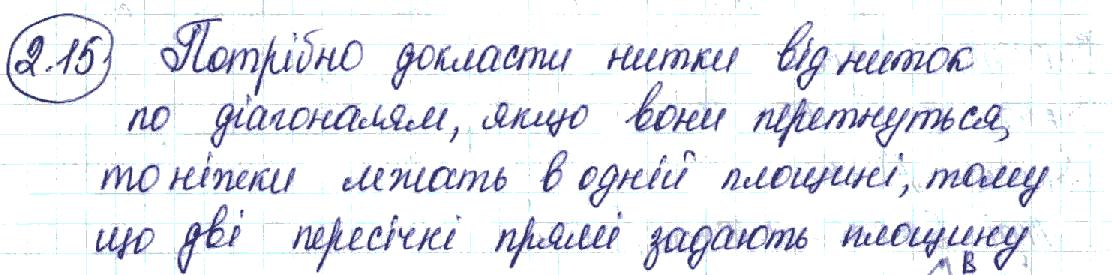 2.15. Потрібно докласти нитки від ниток
по діагоналям, якщо вони перетнуться,
то ніжки лежать в одній площині, тому
що дві пересічні прямі задають площину
B